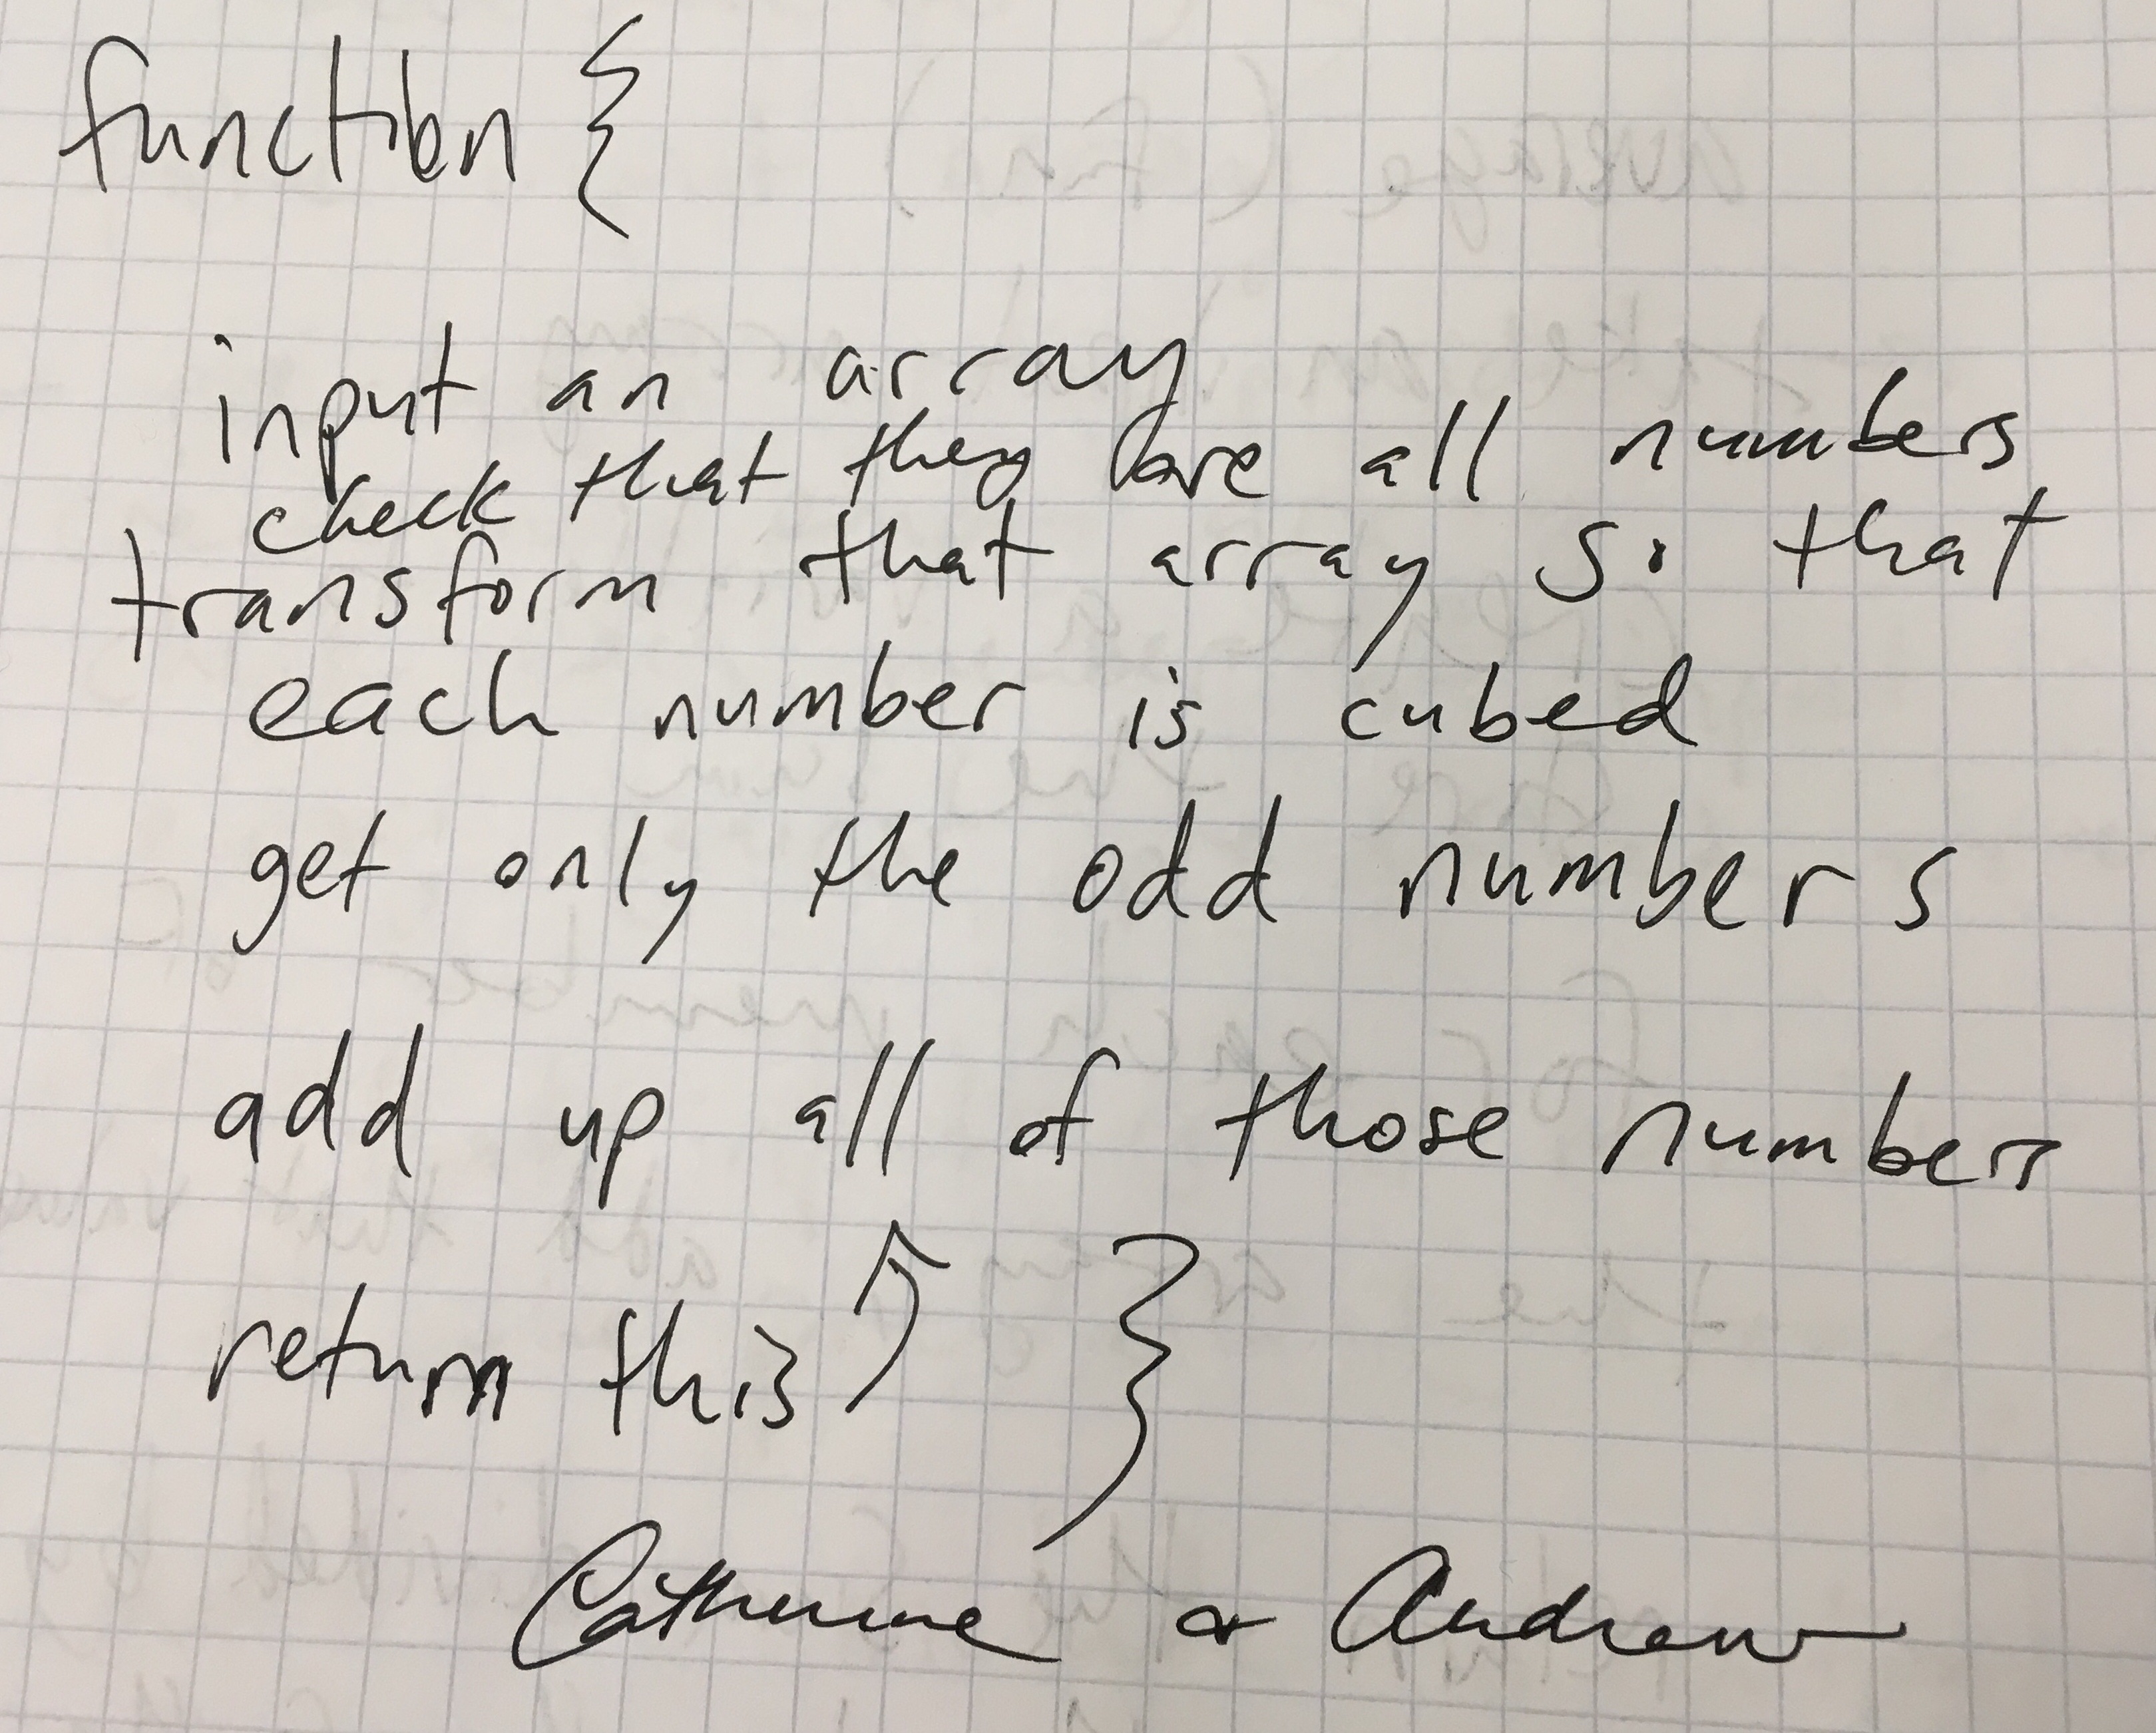 function {
input an array
check that they are all numbers
transform that array so that
each number is cubed
get only the odd numbers
add up all of those numbers
return this }
Catherine & Andrew